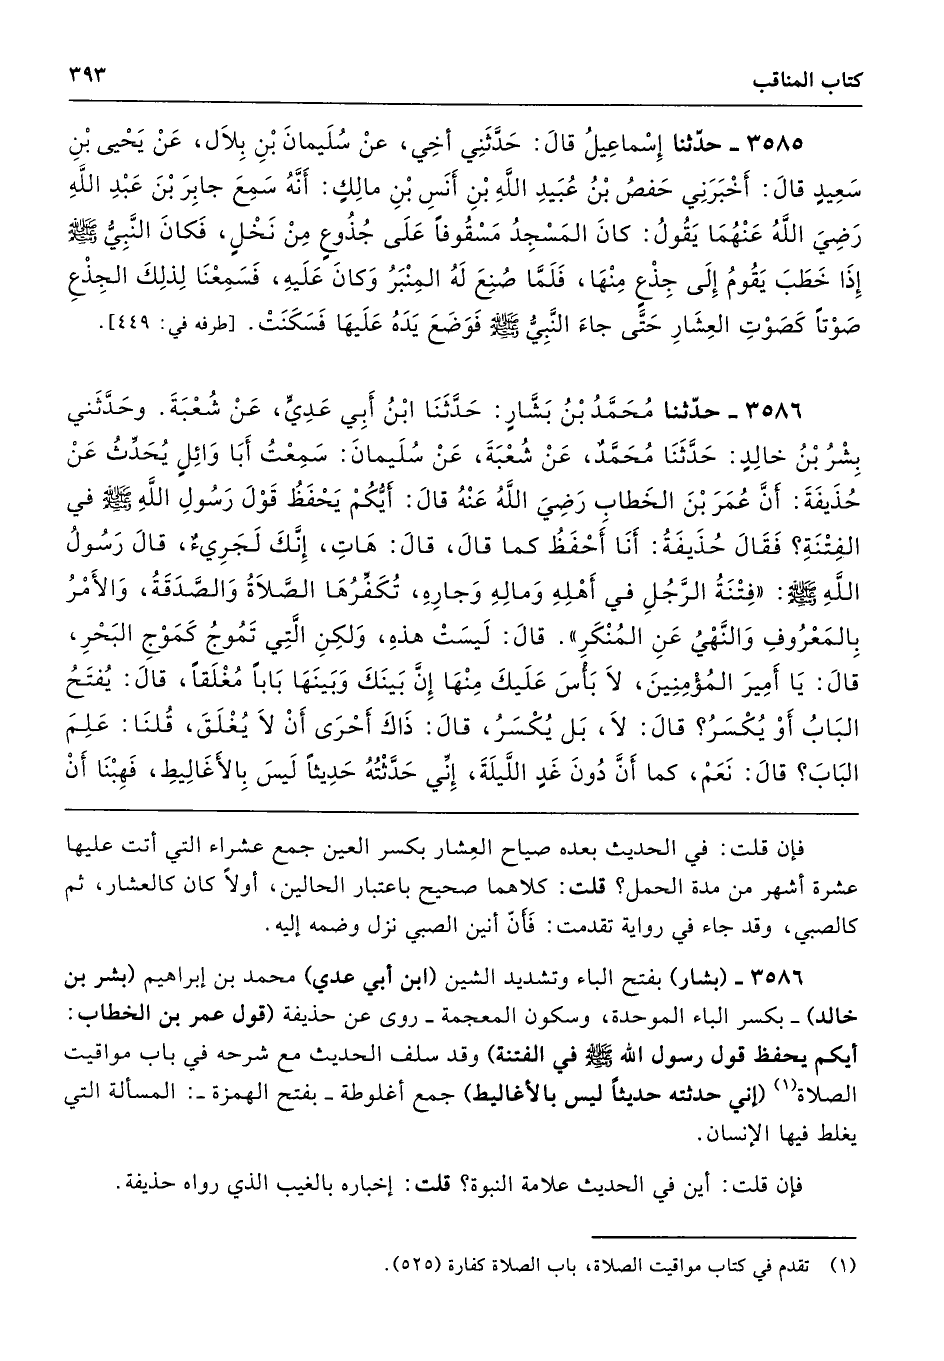 كتاب المناقب ٣٩٣
٣٥٨٥ ـ حدّثنا إِسْماعِيلُ قالَ: حَدَّثَنِي أخِي، عنْ سُلَيمانَ بْنِ بِلاَل، عَنْ يَحْيى بْنِ
سَعِيدٍ قالَ: أَخْبَرَنِي حَفصُ بْنُ عُبَيدِ اللَّهِ بْنِ أَنَسِ بْنِ مالِكٍ: أَنَّهُ سَمِعَ جابِرَ بْنَ عَبْدِ اللَّهِ
رَضِيَ اللَّهُ عَنْهُمَا يَقُولُ: كانَ المَسْجِدُ مَسْقُوفاً عَلَى جُذُوعٍ مِنْ نَخْلٍ، فَكانَ النَّبِيُّ ﷺ
إِذَا خَطَبَ يَقُومُ إِلَى جِذْعٍ مِنْهَا، فَلَمَّا صُنِعَ لَهُ المِنْبَرُ وَكانَ عَلَيهِ، فَسَمِعْنَا لِذلِكَ الجِذْعِ
صَوْتاً كَصَوْتِ العِشَارِ حَتَّى جاءَ النَّبِيُّ ﷺ فَوَضَعَ يَدَهُ عَلَيهَا فَسَكَنَتْ. [طرفه في: ٤٤٩].
٣٥٨٦ ـ حدّثنا مُحَمَّدُ بْنُ بَشَّارٍ: حَدَّثَنَا ابْنُ أَبِي عَدِيٍّ، عَنْ شُعْبَةَ. وحَدَّثَني
بِشْرُ بْنُ خالِدٍ: حَدَّثَنَا مُحَمَّدٌ، عَنْ شُعْبَةَ، عَنْ سُلَيمانَ: سَمِعْتُ أَبَا وَائِلٍ يُحَدِّثُ عَنْ
حُذَيفَةَ: أَنَّ عُمَرَ بْنَ الخَطابِ رَضِيَ اللَّهُ عَنْهُ قالَ: أَيُّكُمْ يَحْفَظُ قَوْلَ رَسُولِ اللَّهِ ﷺ في
الفِتْنَةِ؟ فَقَالَ حُذَيفَةُ: أَنَا أَحْفَظُ كما قالَ، قالَ: هَاتِ، إِنَّكَ لَجَرِيءٌ، قالَ رَسُولُ
اللَّهِ ﷺ: «فِتْنَةُ الرَّجُلِ في أَهْلِهِ وَمالِهِ وَجارِهِ، تُكَفِّرُهَا الصَّلاَةُ وَالصَّدَقَةُ، وَالأَمْرُ
بِالمَعْرُوفِ وَالنَّهْيُ عَنِ المُنْكَرِ». قالَ: لَيسَتْ هذهِ، وَلكِنِ الَّتِي تَمُوجُ كَمَوْجِ البَحْرِ،
قالَ: يَا أَمِيرَ المُؤْمِنِينَ، لاَ بَأْسَ عَلَيكَ مِنْهَا إِنَّ بَينَكَ وَبَينَهَا بَاباً مُغْلَقاً، قالَ: يُفتَحُ
البَابُ أَوْ يُكْسَرُ؟ قالَ: لاَ، بَل يُكْسَرُ، قالَ: ذَاكَ أَحْرَى أَنْ لاَ يُغْلَقَ، قُلنَا: عَلِمَ
البَابَ؟ قالَ: نَعَمْ، كما أَنَّ دُونَ غَدٍ اللَّيلَةَ، إِنِّي حَدَّثْتُهُ حَدِيثاً لَيسَ بِالأَغَالِيطِ، فَهِبْنَا أَنْ
فإن قلت: في الحديث بعده صياح العِشار بكسر العين جمع عشراء التي أتت عليها
عشرة أشهر من مدة الحمل؟ قلت: كلاهما صحيح باعتبار الحالين، أولاً كان كالعشار، ثم
كالصبي، وقد جاء في رواية تقدمت: فَأَنّ أنين الصبي نزل وضمه إليه.
٣٥٨٦ ـ (بشار) بفتح الباء وتشديد الشين (ابن أبي عدي) محمد بن إبراهيم (بشر بن
خالد) ـ بكسر الباء الموحدة، وسكون المعجمة ـ روى عن حذيفة (قول عمر بن الخطاب:
أيكم يحفظ قول رسول الله ﷺ في الفتنة) وقد سلف الحديث مع شرحه في باب مواقيت
الصلاة(١) (إني حدثته حديثاً ليس بالأغاليط) جمع أغلوطة ـ بفتح الهمزة ـ: المسألة التي
يغلط فيها الإنسان.
فإن قلت: أين في الحديث علامة النبوة؟ قلت: إخباره بالغيب الذي رواه حذيفة.
(١) تقدم في كتاب مواقيت الصلاة، باب الصلاة كفارة (٥٢٥).